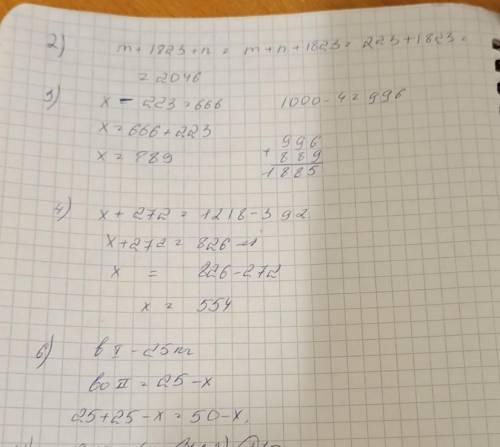 2) m + 1823 + n = m + n + 1823 = 223 + 1823 =
= 2046
3) x - 223 = 666 1000 - 4 = 996
x = 666 + 223
x = 889
996
+ 889
1885
4) x + 272 = 1218 - 392
x + 272 = 826
x = 826 - 272
x = 554
6) в I - 25 кг
во II = 25 - x
25 + 25 - x = 50 - x.